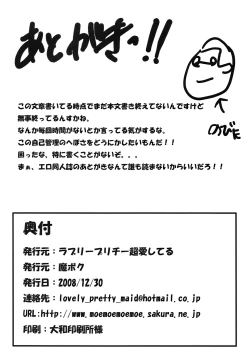 あとがきっ!!
のびた
この文章書いてる時点でまだ本文書き終えてないんですけど
無事終ってるんすかね。
なんか毎回時間がないとか言ってる気がするな。
この自己管理のへぼさをどうにかしたいもんだ！！
困ったな、特に書くことがないぞ。。。
まぁ、エロ同人誌のあとがきなんて誰も読まないからいいだろ！！
奥付
発行元：ラブリープリチー超愛してる
発行元：魔ボク
発行日：2008/12/30
連絡先：lovely_pretty_maid@hotmail.co.jp
URL:http://www.moemoemoemoe.sakura.ne.jp
印刷：大和印刷所様